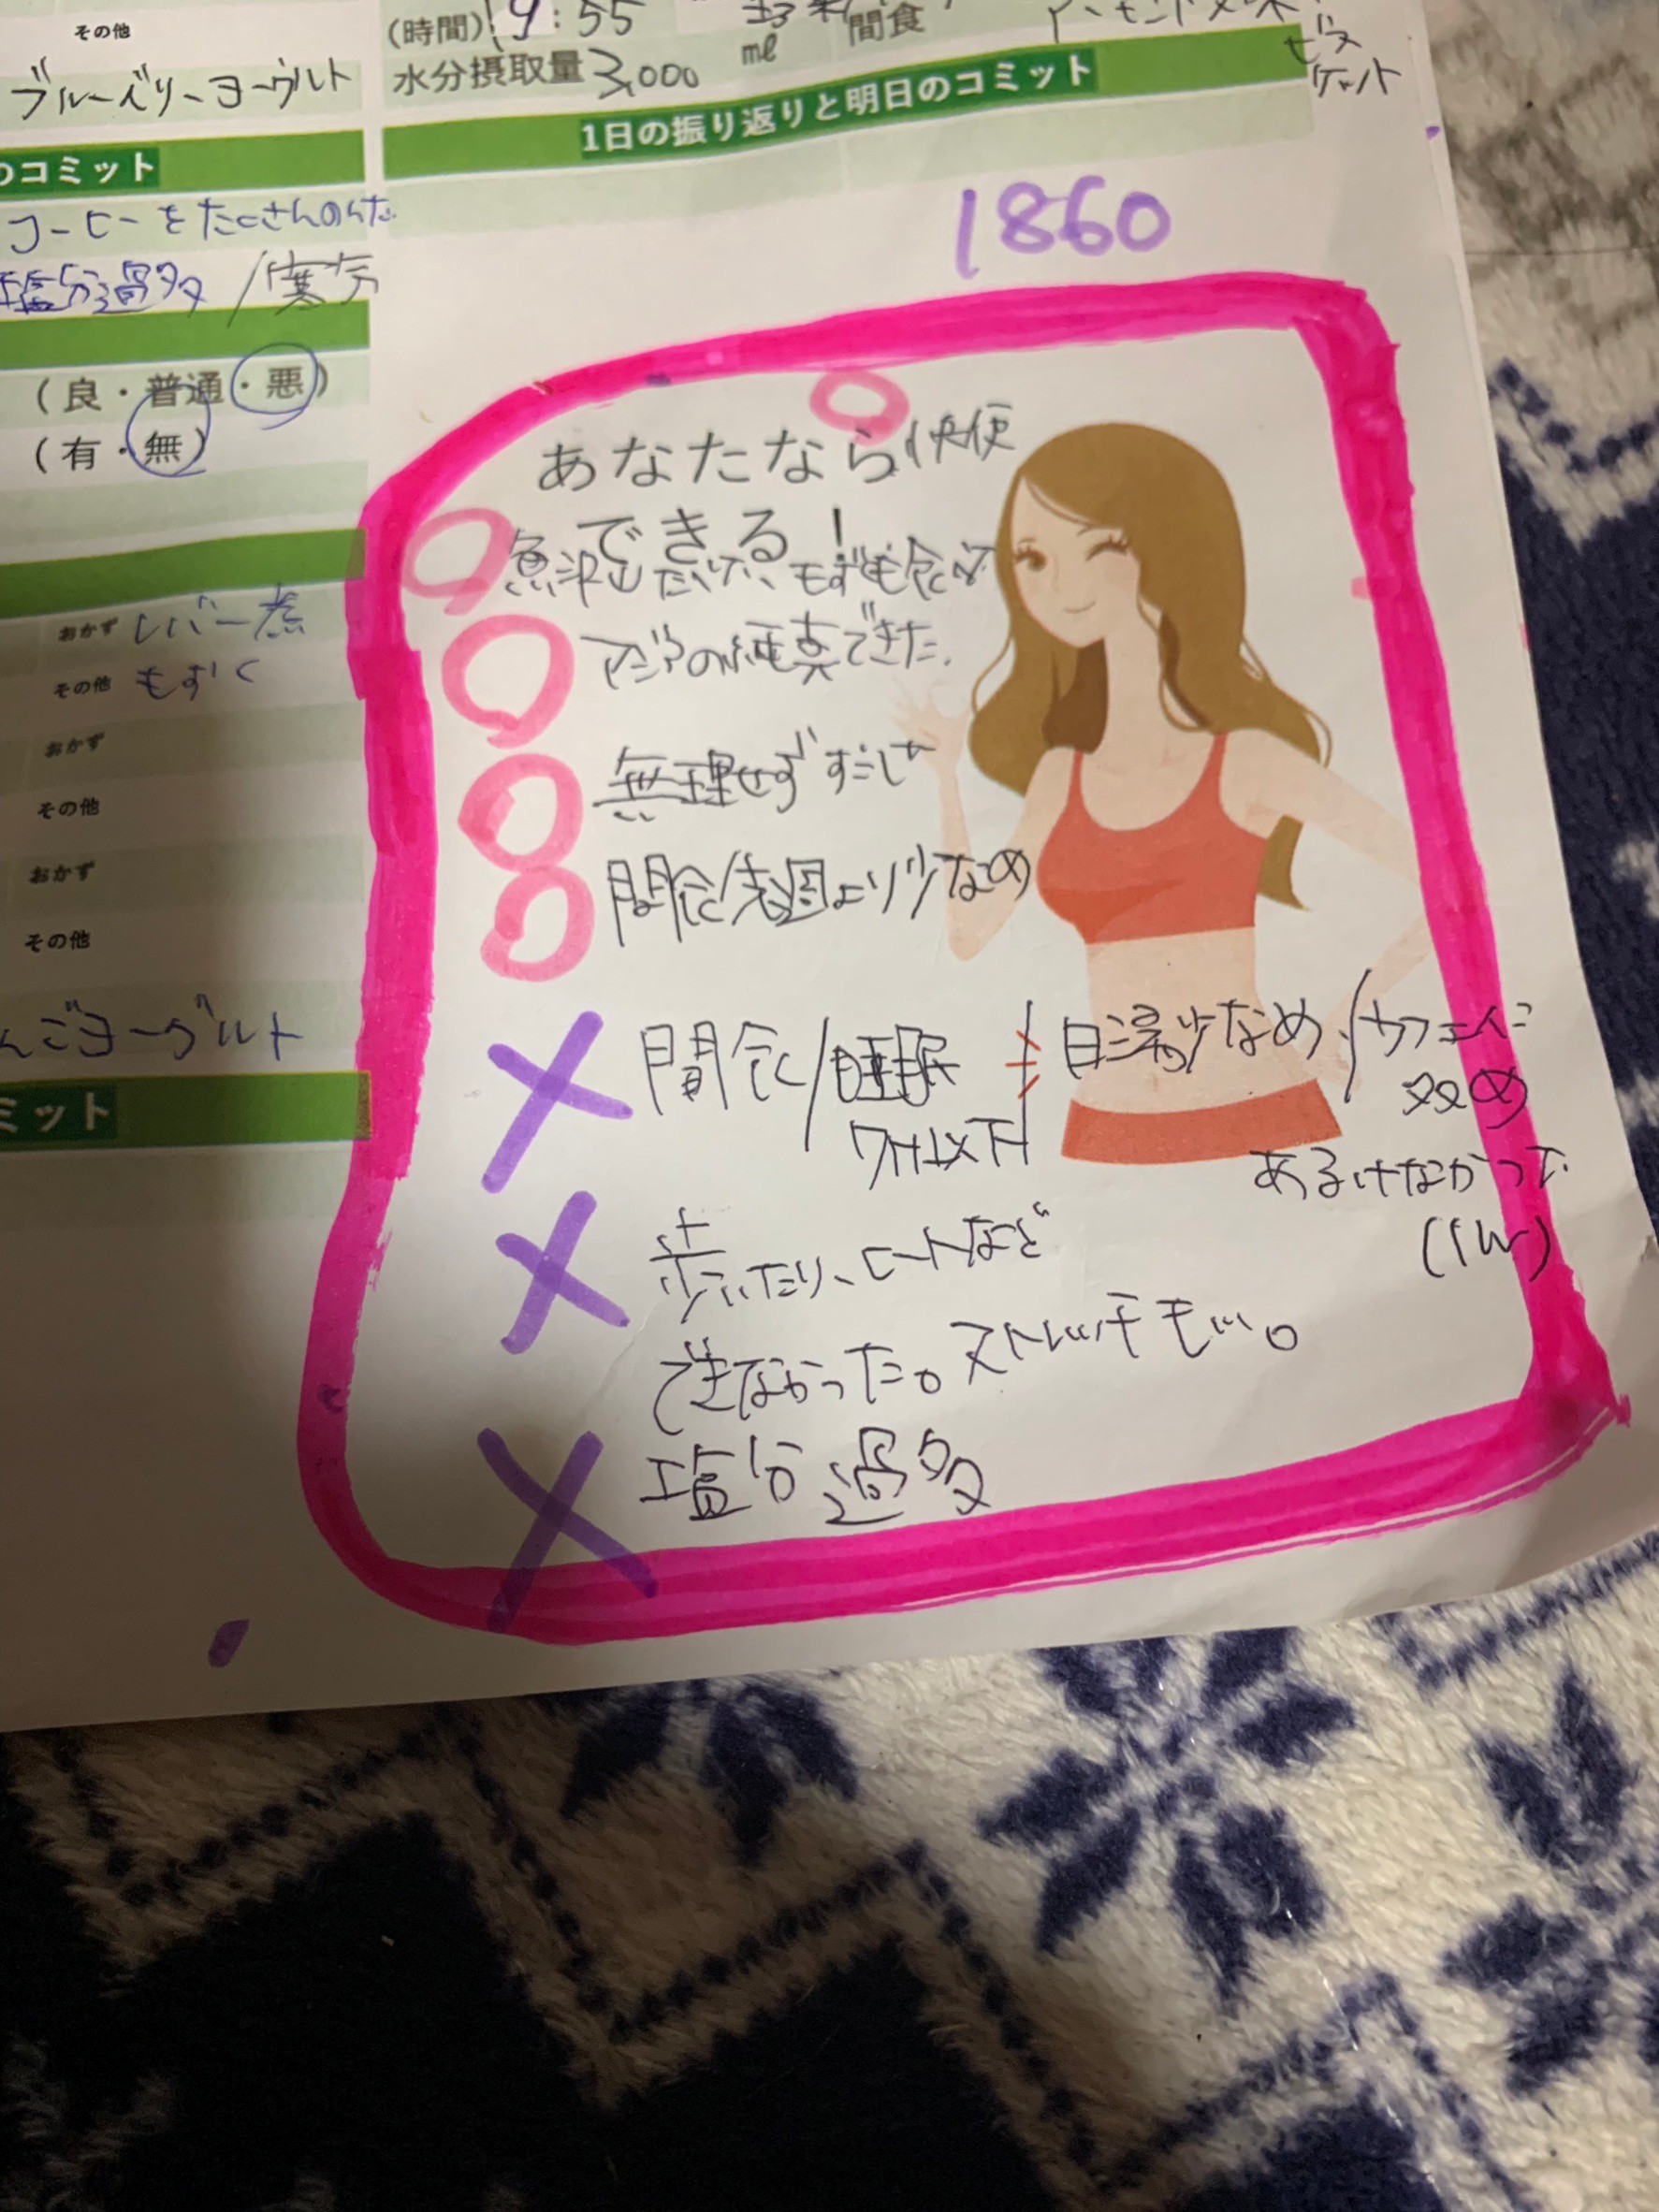 その他
ブルーベリーヨーグルト
のコミット
コーヒーをたくさんのんだ
塩分過多 / 寒気
(良・普通・悪)
(有・無)
おかず レバー煮
その他 もずく
おかず
その他
おかず
その他
んごヨーグルト
ミット
(時間) 19:55
間食
水分摂取量 3,000 ml
ビスケット
1日の振り返りと明日のコミット
1860
あなたなら 快便
できる!
魚沢山 もずも食べ
の練習できた.
無理せずすごした
間食/先週より少なめ
間食/睡眠
7H以下
白湯少なめ/カフェイン
多め
あるけなかった
(1w)
歩いたり、ヒートなど
できなかった。ストレッチも…。
塩分過多